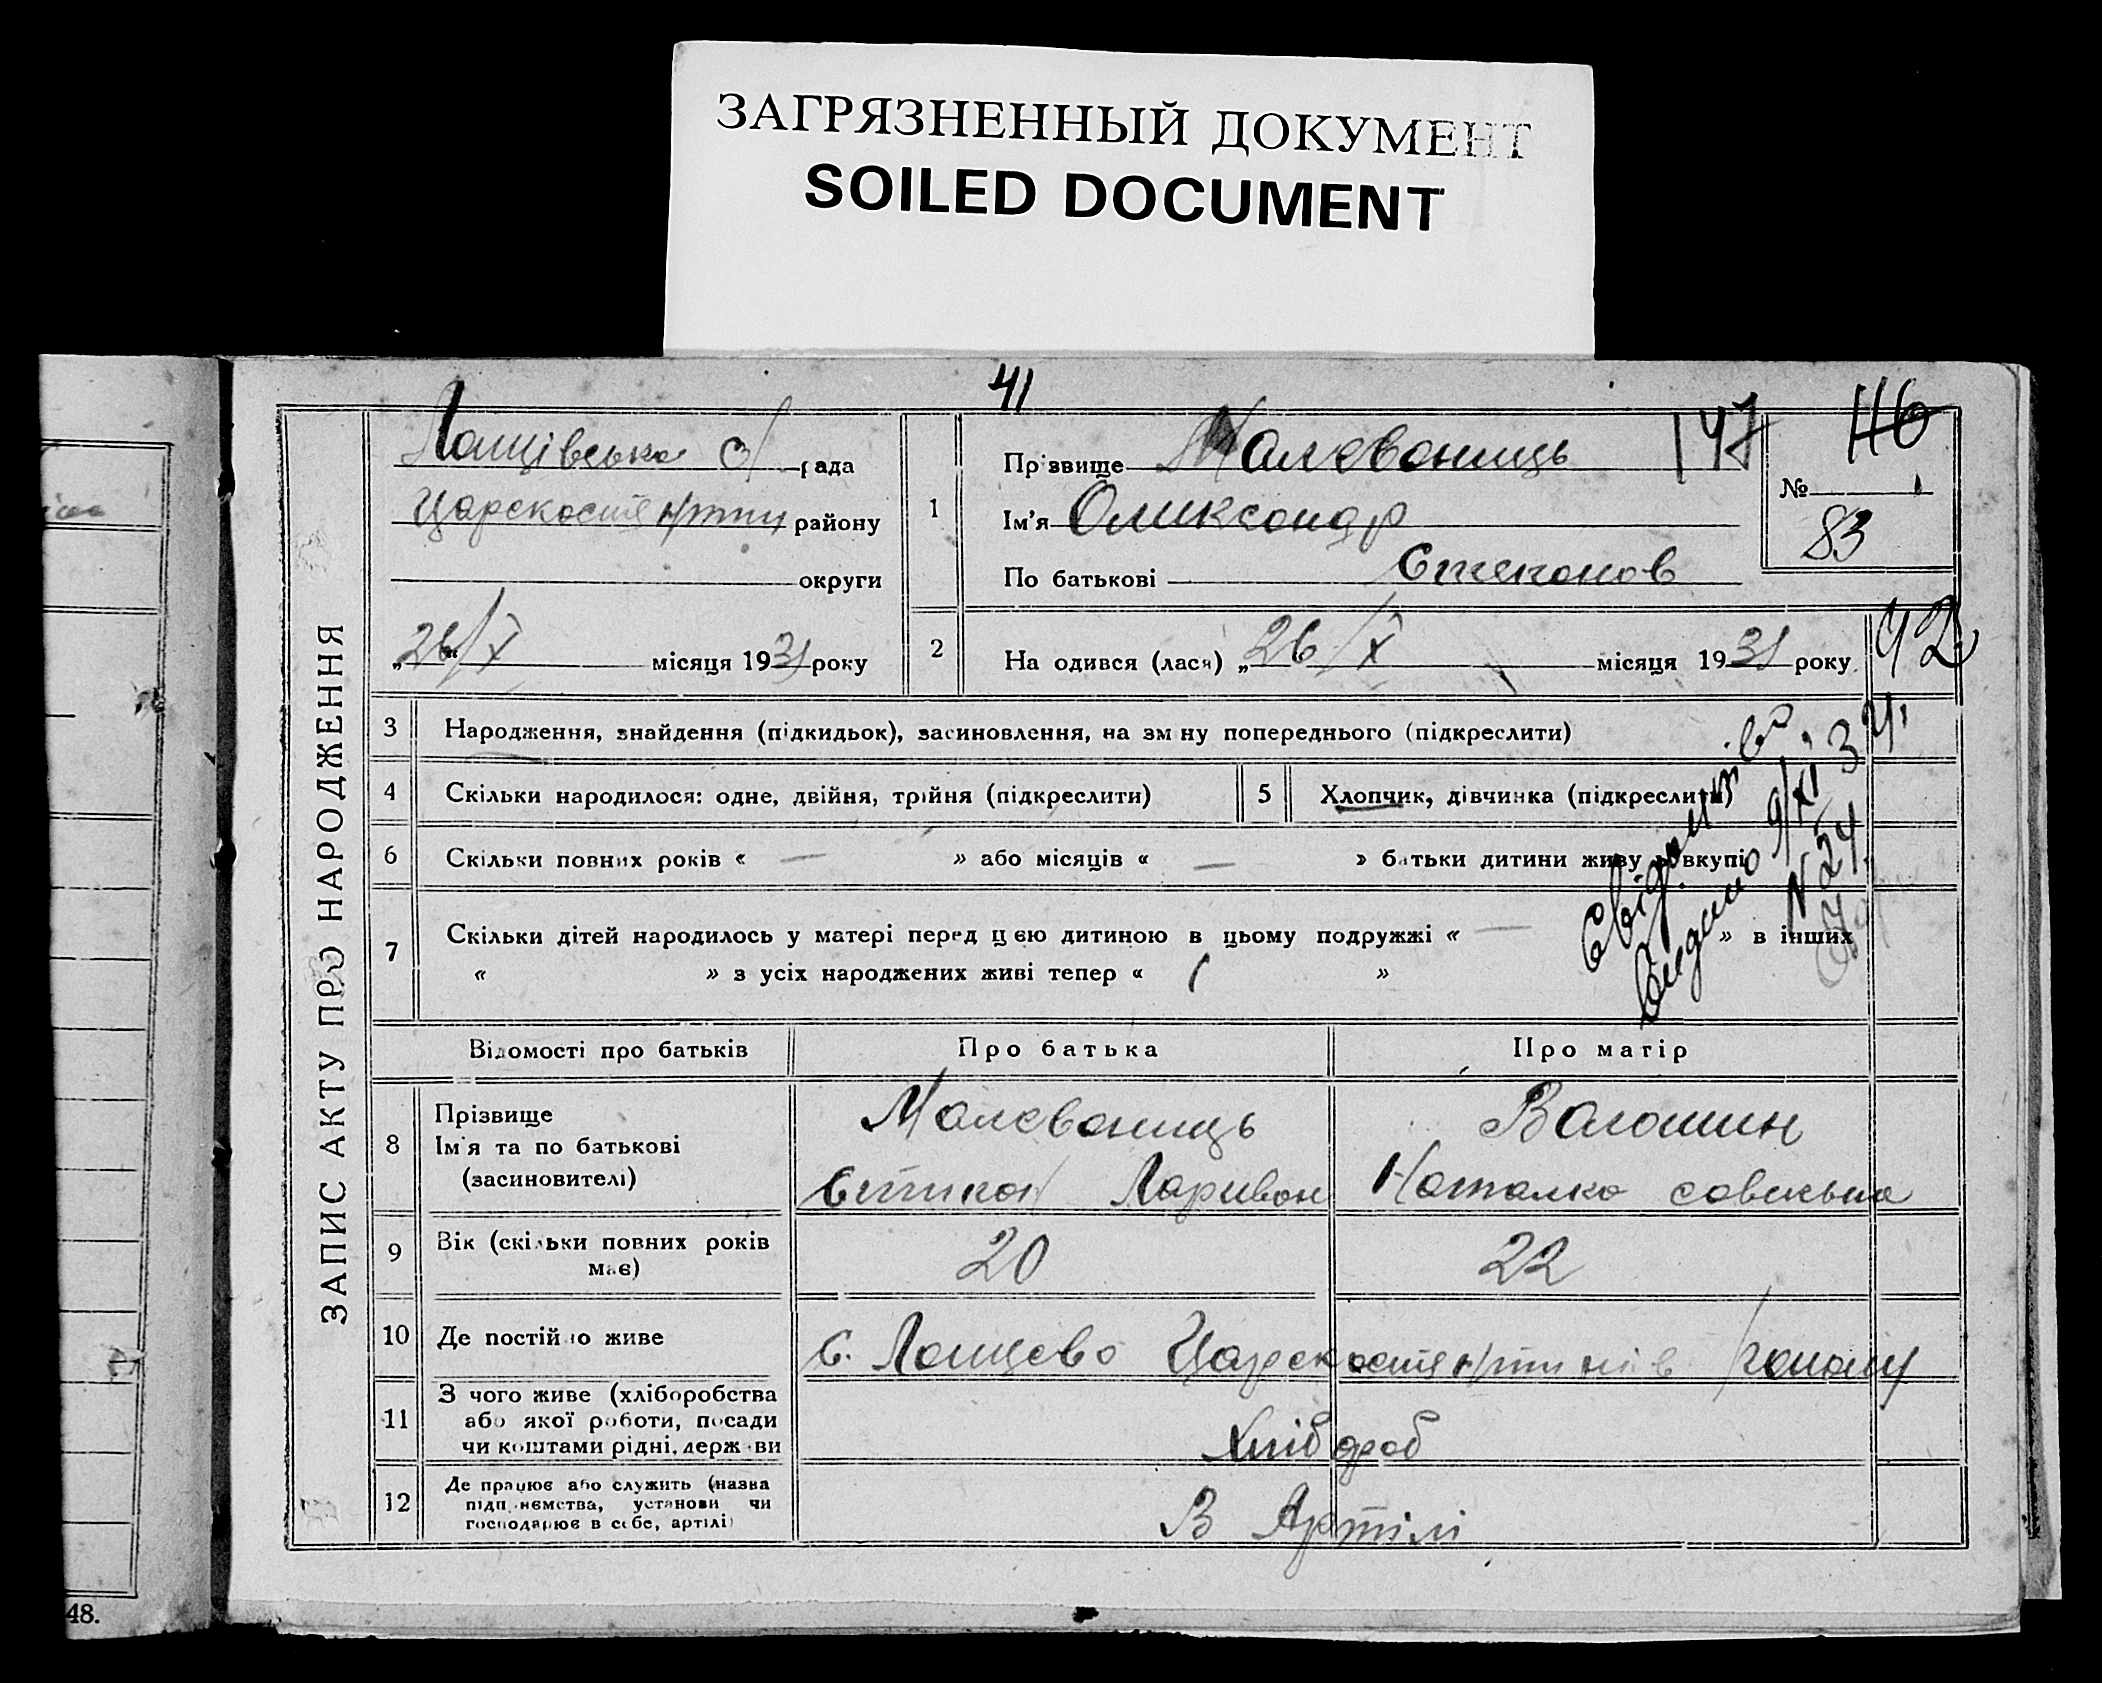 ЗАГРЯЗНЕННЫЙ ДОКУМЕНТ
SOILED DOCUMENT
41
147
116
ЗАПИС АКТУ ПРО НАРОДЖЕННЯ
Лощівська с/ рада
району
округи
„26/X місяця 1931 року
1
Прізвище Малеваниць
Ім'я Оликсандр
По батькові Степанов
№
83
2 На одився (лася) „26/X місяця 1931 року
92
3 Народження, знайдення (підкидьок), засиновлення, на зм ну попереднього (підкреслити)
4 Скільки народилося: одне, двійня, трійня (підкреслити) 5 Хлопчик, дівчинка (підкреслити)
6 Скільки повних років « — » або місяців « — » батьки дитини живу вкупі
7 Скільки дітей народилось у матері перед цею дитиною в цьому подружжі « — » в інших
« » з усіх народжених живі тепер « »
Видано 9/XI 31
N 24
Відомості про батьків Про батька Про матір
8 Прізвище Малеваниць Волошин
Ім'я та по батькові
(засиновителі) Ларивон Наталка
9 Вік (скільки повних років 20 22
має)
10 Де постійно живе с. Лощево
11 З чого живе (хліборобства
або якої роботи, посади
чи коштами рідні, держави Хлібороб
12 Де працює або служить (назва
підп иємства, установи чи
господарює в себе, артілі) В Артілі
48.